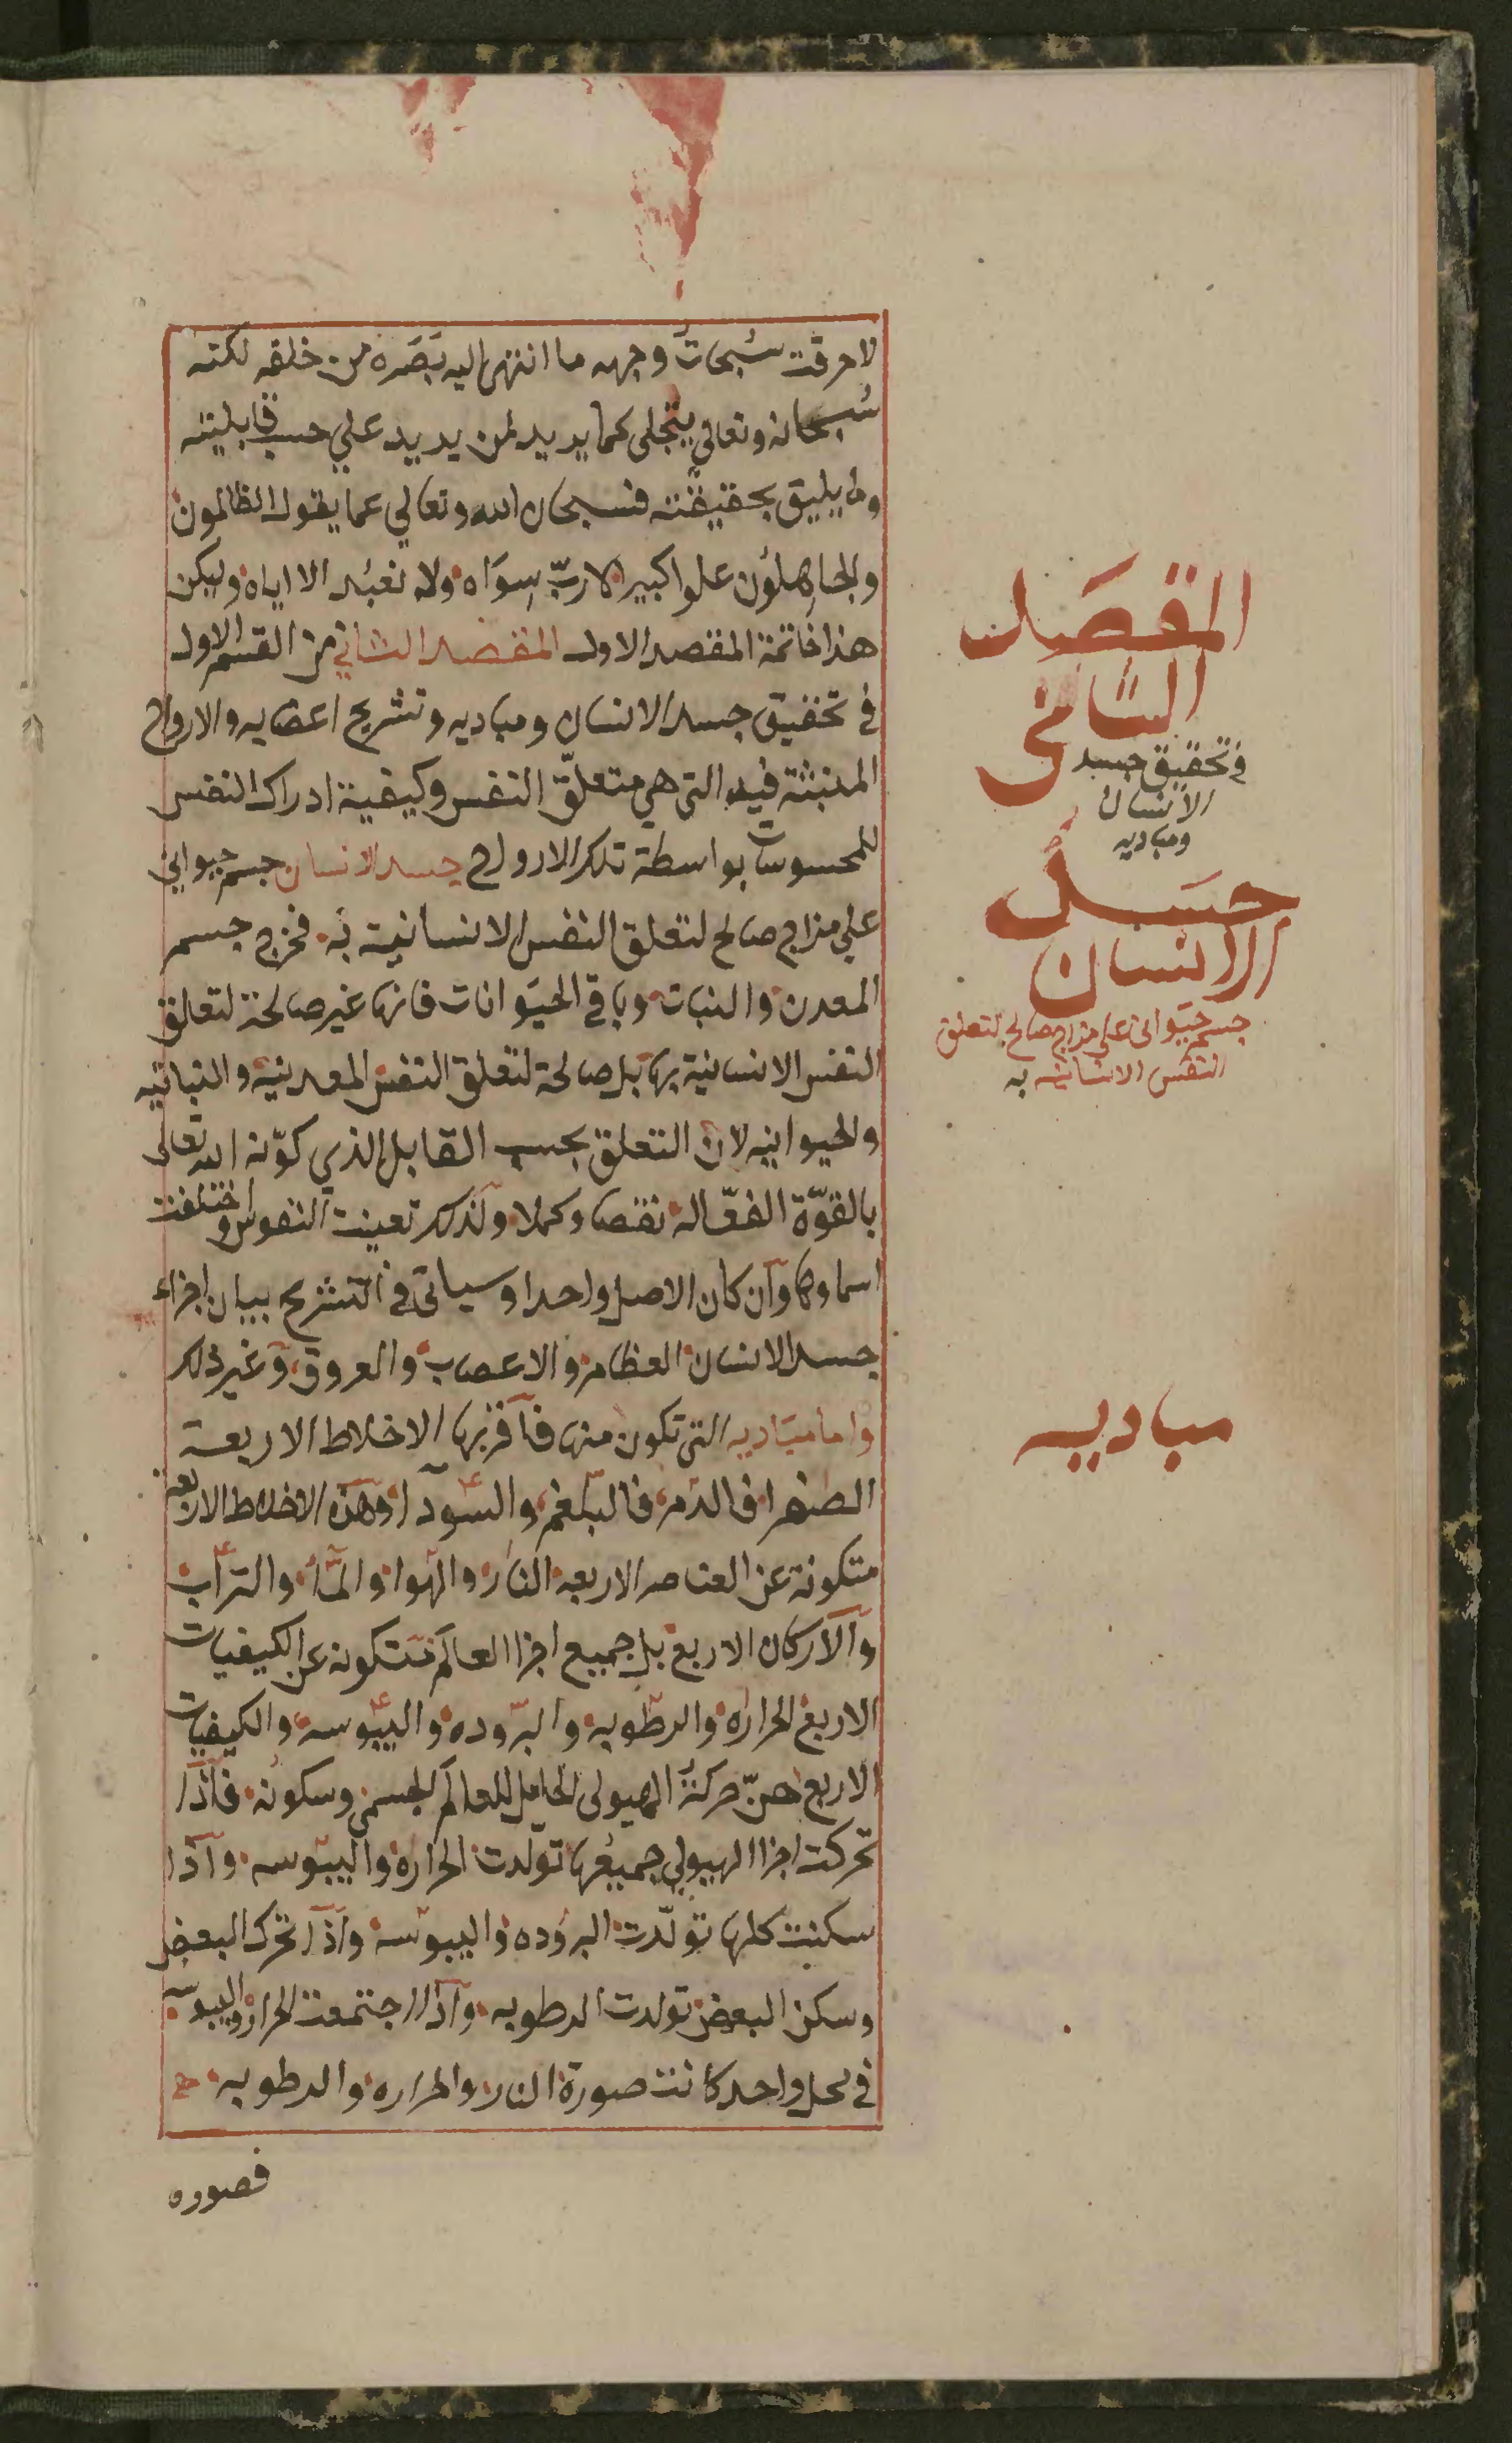 لاحرقت سُبحات وجهه ما انتهى اليه بَصَره من خلقه لكنه
سُبحانه وتعالى يتجلى كما يريد لمن يريد علي حسب قابليته
وما يليق بحقيقته فسبحان الله وتعالي عما يقول الظالمون
والجاهلون علوا كبيرا لا ربّ سِوَاه ولا نعبُد الا اياه وليكن
هذا خاتمة المقصد الاول المقصد الثاني من القسم الاول
في تحقيق جسد الانسان ومباديه وتشريح اعضايه والارواح
المنبثة فيه التي هي متعلّق النفس وكيفية ادراك النفس
للمحسوسات بواسطة تلك الارواح جسد الانسان جسم حيواني
علي مزاج صالح لتعلق النفس الانسانية به فخرج جسم
المعدن والنبات وباقي الحيَوانات فانها غير صالحة لتعلق
النفس الانسانية بها بل صالحة لتعلق النفس المعدنية والنباتيه
والحيوانيه لان التعلق بحسب القابل الذي كوّنه الله تعالى
بالقوّة الفعّاله نقصا وكملا ولذلك تعينت النفوس واختلفت
اسماوها وان كان الاصل واحدا وسياتي في التشريح بيان اجزاء
جسد الانسان العظام والاعصاب والعروق وغير ذلك
واما مبَاديه التي تكون منها فاقربها الاخلاط الاربعة
الصفرا فالدم فالبلغم والسودا وهذه الاخلاط الاربعة
متكونة عن العناصر الاربعه النار والهوا والماء والتراب
والاركان الاربع بل جميع اجزا العالم متكونه عن الكيفيات
الاربع الحراره والرطوبه والبروده واليبوسه والكيفيات
الاربع هنّ حركة الهيولى الحامل للعالم الجسمي وسكونه فاذا
تحركت اجزا الهيولي جميعُها تولدت الحراره واليبوسه واذا
سكنت كلها تولّدت البروده واليبوسه واذا تحرك البعض
وسكن البعض تولدت الرطوبه واذا اجتمعت الحراره واليبوسه
في محل واحد كانت صورة النار والحراره والرطوبه
فصوره
المقصَد
الثاني
في تحقيق جسد
الانسان
ومباديه
جسَد
الانسان
جسم حيَواني علي مزاج صالح لتعلق
النفس الانسانيه به
مباديه